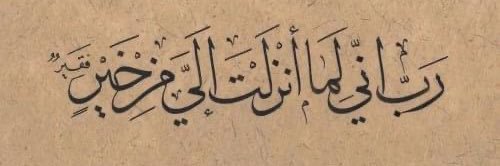 رَبِّ انِّي لِمَا أَنْزَلْتَ إِلَيَّ مِنْ خَيْرٍ فَقِيرٌ